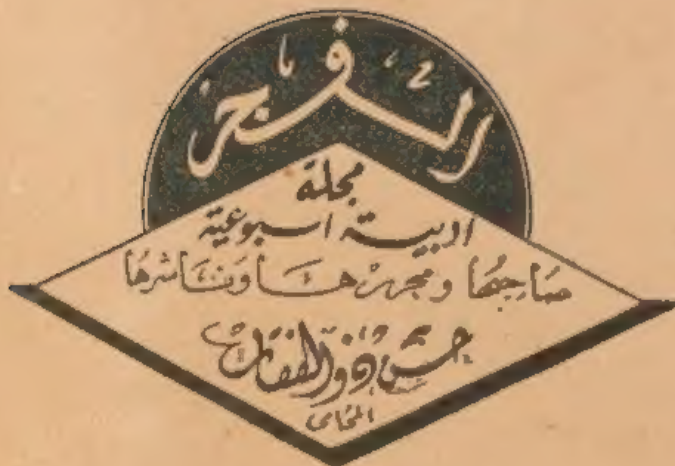 الفجر
مجلة
ادبية اسبوعية
صاحبها ومحررها وناشرها
حسن ذو الفقار
المحامى